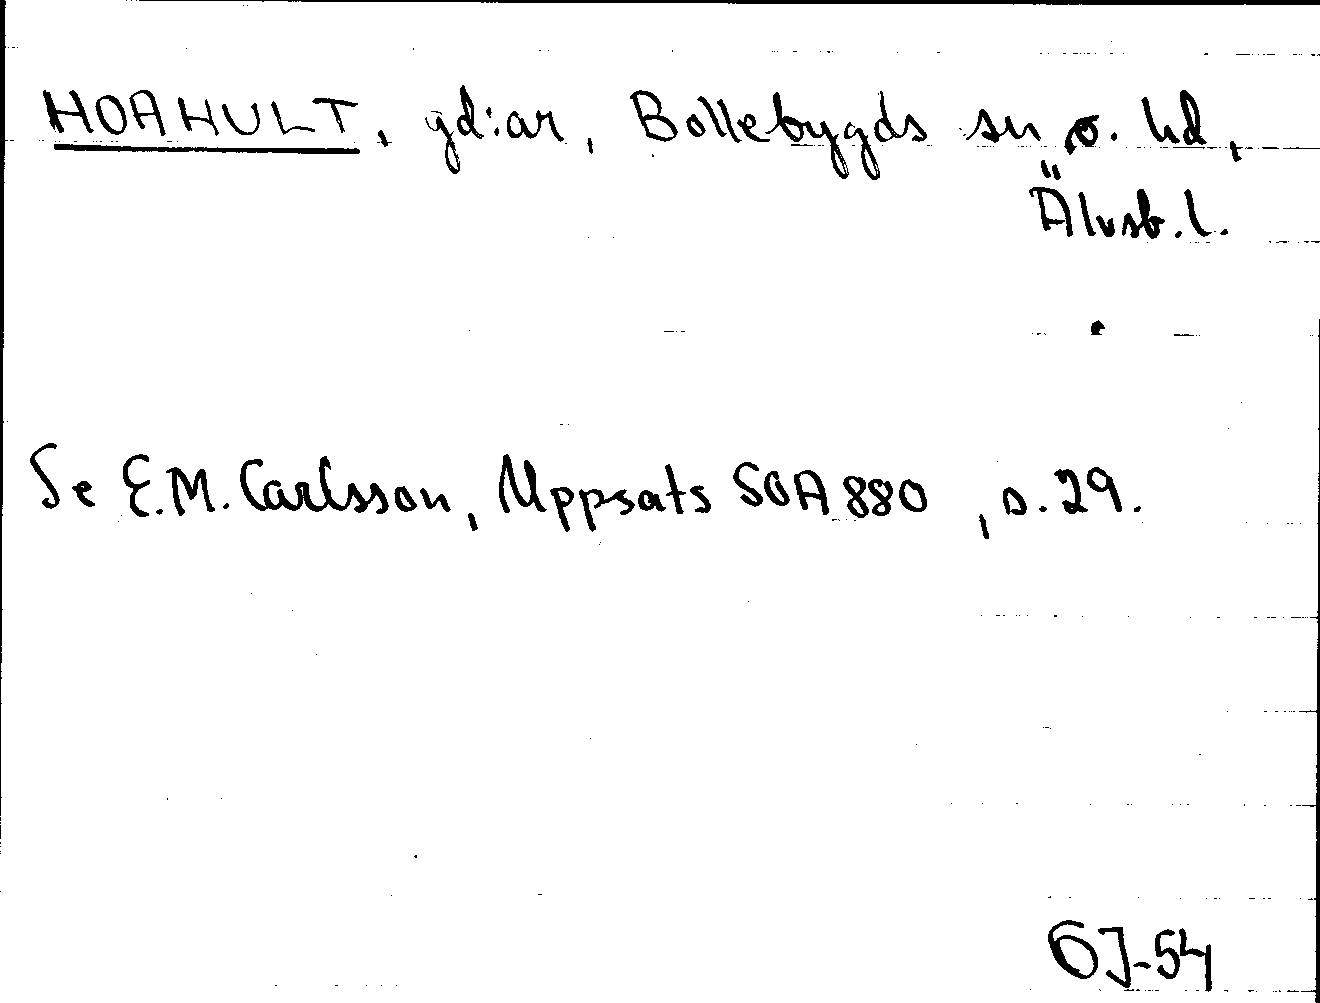 HOAHULT, gd:ar, Bollebygds sn o. hd,
Älvsb. l.
Se E.M. Carlsson, Uppsats SOA 880, s. 29.
GJ-54